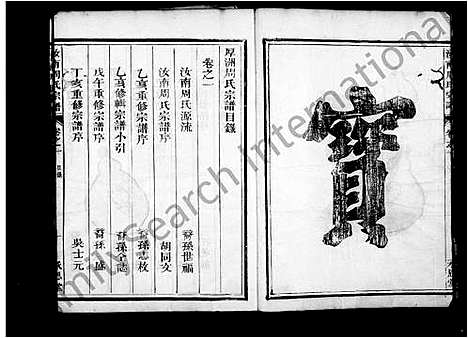 寶
汝南周氏宗譜
厚洲周氏宗譜目錄
卷之一
汝南周氏源流 裔孫世福
汝南周氏宗譜序 胡同文
乙亥修宗譜序 裔孫志枚
乙亥修輯宗譜小引 裔孫全志
戊午重修宗譜序 裔孫盛
丁亥重修宗譜序 吳士元
汝南周氏宗譜 卷之一 目錄
FamilySearch International